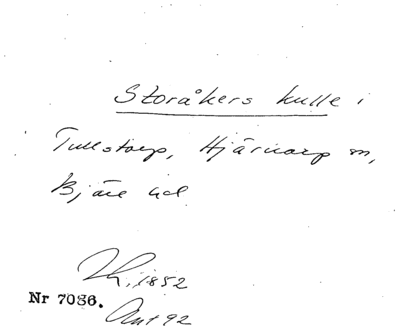 Storåkers kulle i
Tullstorp, Hjärnarp sn,
Bjäre hd
1852
Nr 7086.
Ant 92